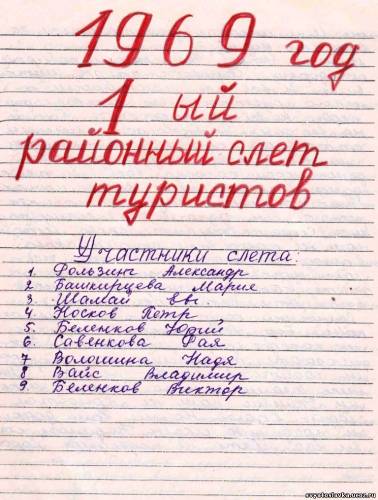 1969 год
1 ый
районный слет
туристов
Участники слета:
1. Фользинг Александр
2 Башкирцева Мария
3. Шамай
4. Носков Петр
5. Беленков Юрий
6. Савенкова Рая
7 Волошина Надя
8 Вайс Владимир
9. Беленков Виктор
svyatoslavka.ucoz.ru